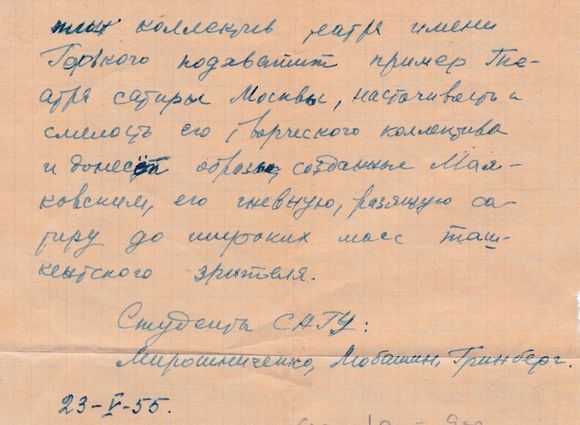 коллектив театра имени
Горького подхватит пример Теа-
атра сатиры Москвы, настойчивость и
смелость его творческого коллектива
и донесёт образы, созданные Мая-
ковским, его гневную, разящую са-
тиру до широких масс таш-
кентского зрителя.
Студенты САГУ:
Мирошниченко, Мобашин, Гринберг.
23-V-55.